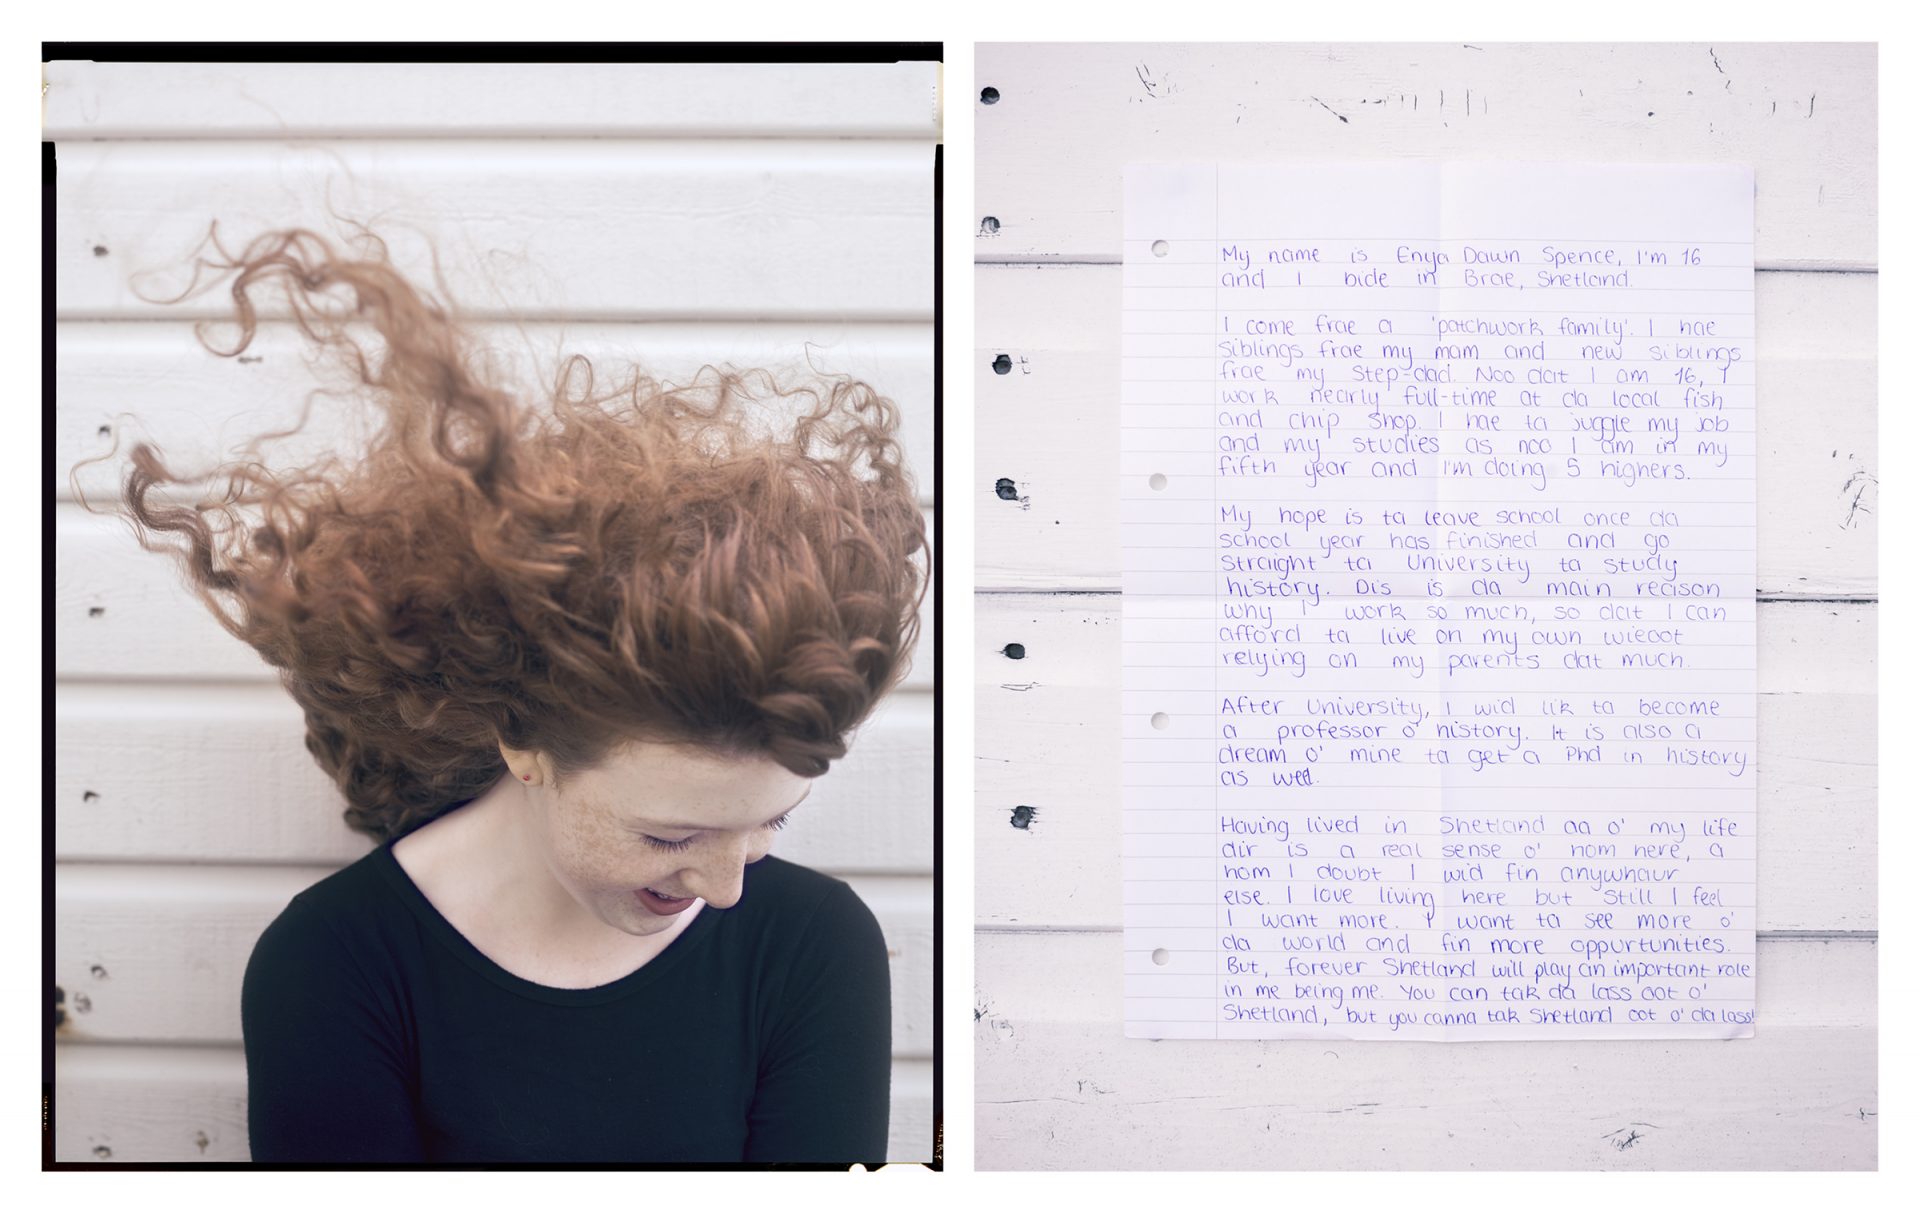 My name is Enya Dawn Spence, I'm 16
and I bide in Brae, Shetland.
I come frae a 'patchwork family'. I hae
siblings frae my mam and new siblings
frae my step-dad. Noo dat I am 16, I
work nearly full-time at da local fish
and chip shop. I hae ta juggle my job
and my studies as noo I am in my
fifth year and I'm doing 5 highers.
My hope is ta leave school once da
school year has finished and go
straight ta University ta study
history. Dis is da main reason
why I work so much, so dat I can
afford ta live on my own wieoot
relying on my parents dat much.
After University, I wid lik ta become
a professor o' history. It is also a
dream o' mine ta get a Phd in history
as weel.
Having lived in Shetland aa o' my life
dir is a real sense o' hom here, a
hom I doubt I wid fin anywhaur
else. I love living here but still I feel
I want more. I want ta see more o'
da world and fin more oppurtunities.
But, forever Shetland will play an important role
in me being me. You can tak da lass oot o'
Shetland, but you canna tak Shetland oot o' da lass!